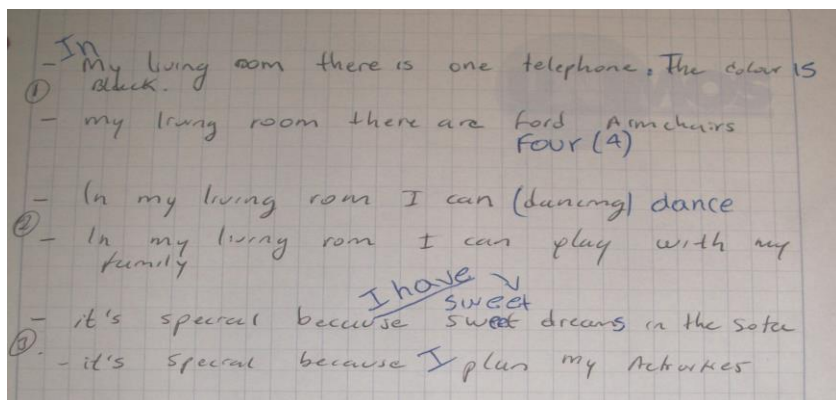 In
- My living oom there is one telephone. The colour is
① Black.
- my living room there are Ford Armchairs
Four (4)
- In my living rom I can (dancing) dance
②
- In my living rom I can play with my
family
I have
sweet
- it's special because sweet dreams in the sofea
③
- it's special because I plan my Activities